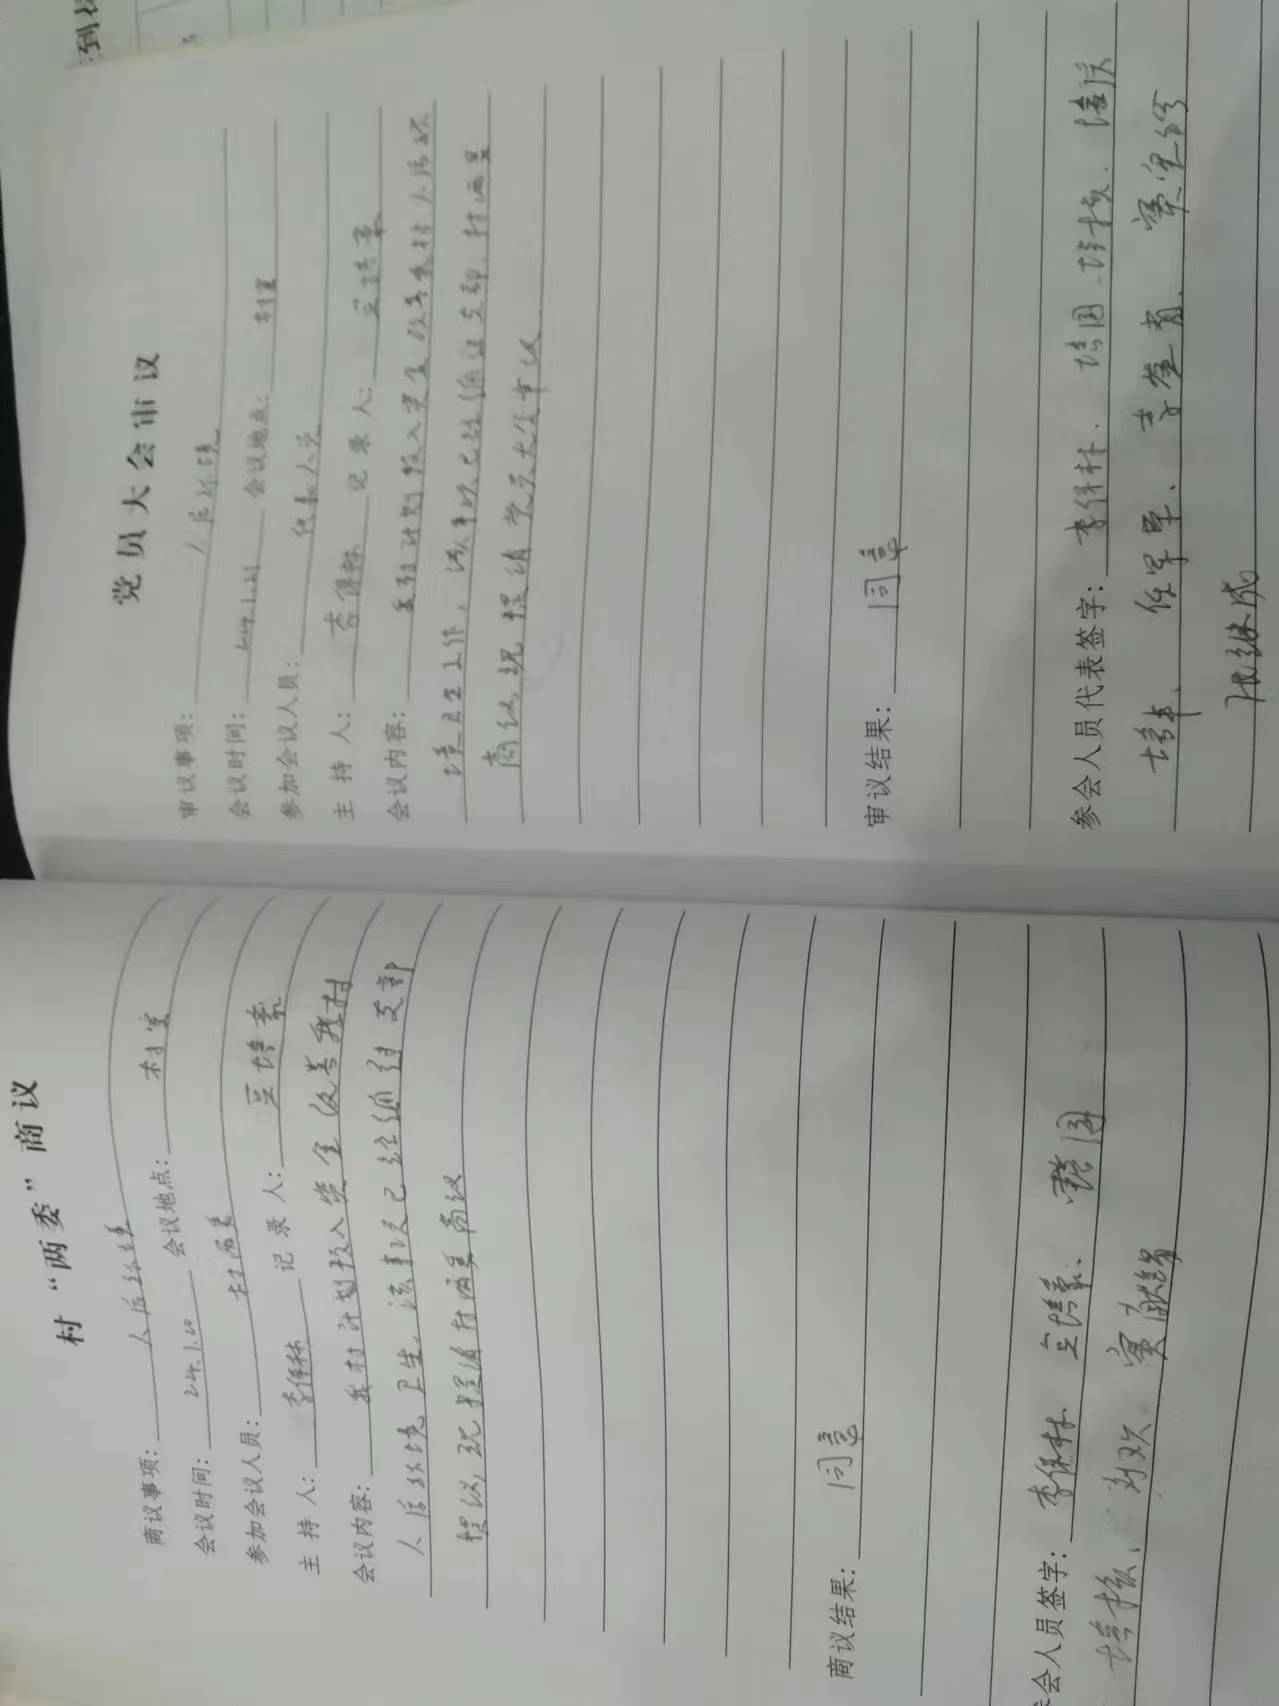 村“两委”商议
商议事项：人居环境
会议时间：24.1.20 会议地点：村室
参加会议人员：村两委
主持人：李保林 记录人：
会议内容：我村计划投入资金改善我村
人居环境卫生，该事项已经通过支部
提议，现提请村两委商议
商议结果：同意
会人员签字：李保林
培振、刘欢
党员大会审议
审议事项：人居环境
会议时间：24.1.21 会议地点：村室
参加会议人员：代表人员
主持人：李保林 记录人：
会议内容：我村计划投入资金改善我村人居环
境卫生工作，该事项已经通过支部、村两委
商议，现提请党员大会审议
审议结果：同意
参会人员代表签字：李保林、培国、培振、